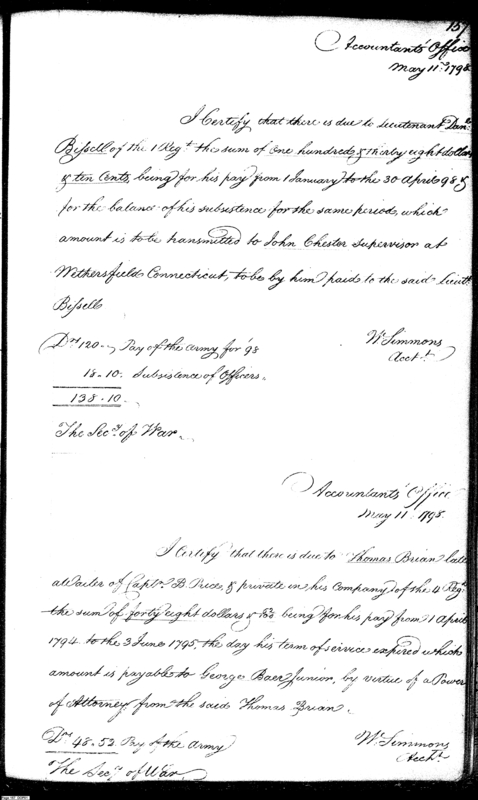 157
Accountants' Office
May 11th 1798
I Certify that there is due to Lieutenant Danl.
Bissell of the 1 Regt. the sum of One hundred & thirty eight dollars
& ten Cents, being for his pay from 1 January to the 30 April 98 &
for the balance of his subsistence for the same period, which
amount is to be transmitted to John Chester Supervisor at
Wethersfield Connecticut, to be by him paid to the said Lieutt.
Bissell
Drs 120 - Pay of the Army for 98
18.10. Subsistence of Officers.
138.10
The Secy. of War.
Wm Simmons
Acct.
Accountants' Office
May 11 1798.
I Certify that there is due to Thomas Brian late
a Waiter of Captn. B Price, & private in his Company of the 4 Regt.
the sum of forty eight dollars & 53/100 being for his pay from 1 April
1794 to the 3 June 1795, the day his term of service expired which
amount is payable to George Baer Junior, by virtue of a Power
of Attorney from the said Thomas Brian.
Drs 48.53 Pay of the Army
The Secy. of War
Wm Simmons
Acct.